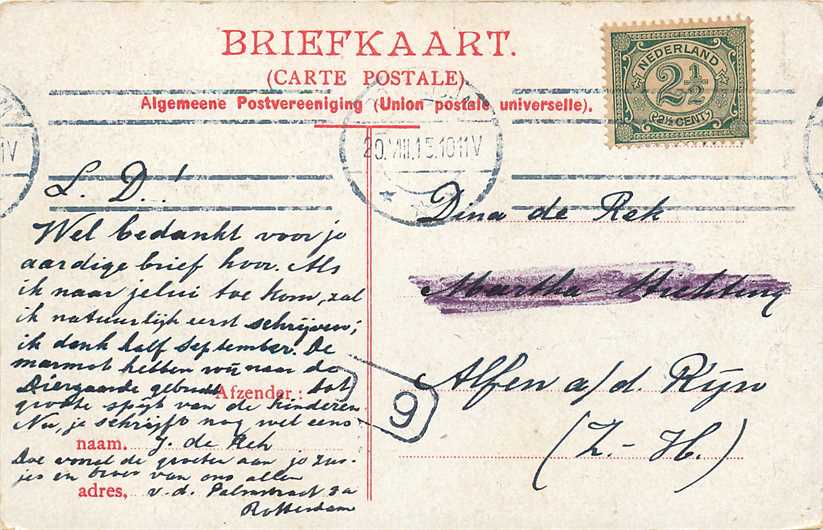 BRIEFKAART.
(CARTE POSTALE).
Algemeene Postvereeniging (Union postale universelle).
NEDERLAND
2½
2½ CENT
20.VIII.15.10-11V
1V
L. D.!
Wel bedankt voor je
aardige brief hoor. Als
ik naar jelui toe kom, zal
ik natuurlijk eerst schrijven;
ik denk half September. De
marmot hebben we naar de
Diergaarde gebracht Afzender: tot
groote spijt van de kinderen
Nu, je schrijft nog wel eens
naam. J. de Rek
Doe vooral de groeten aan je zus-
jes en broer van ons allen
adres, v.d. Palmstraat 9a
Rotterdam
Dina de Rek
Martha Stichting
Alfen a/d. Rijn
(Z.-H.)
9